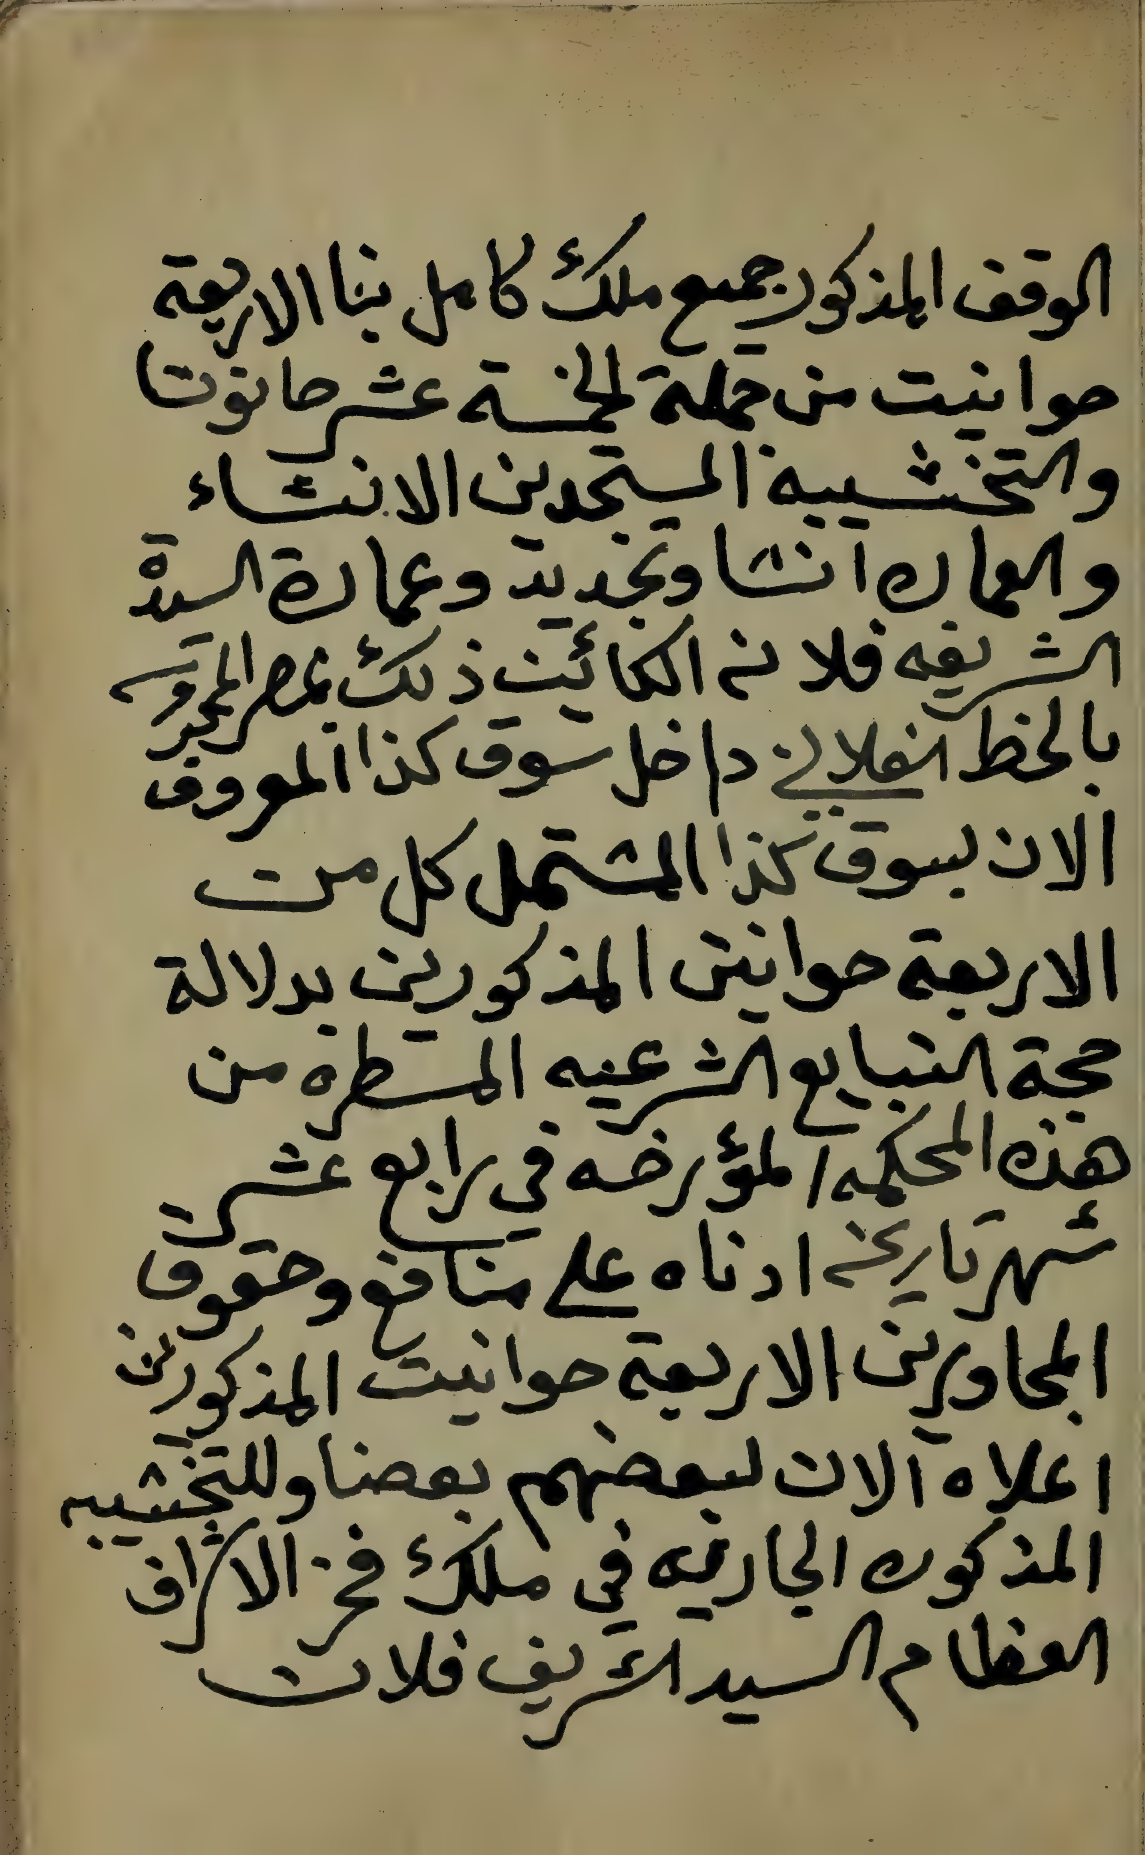 الوقف المذكور جميع ملك كامل بنا الاربعة
حوانيت من جملة الخمسة عشر حانوتا
والتخشيبة المستجدين الانشاء
والعماره انشا وتجديد وعمارة السيدة
الشريفه فلانه الكائين ذلك بمصر المحروسه
بالخط الفلاني داخل سوق كذا المعروف
الان بسوق كذا المشتمل كل من
الاربعة حوانيت المذكورين بدلالة
حجة التبايع الشرعيه المسطره من
هذه المحكمه المؤرخه في رابع عشر
شهر تاريخه ادناه على منافع وحقوق
المجاورين الاربعة حوانيت المذكورين
اعلاه الان لبعضهم بعضا وللتخشيبه
المذكوره الجاريه في ملك فخر الاشراف
العظام السيد الشريف فلان